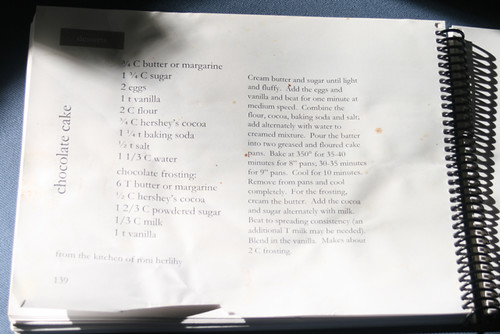 chocolate cake
¾ C butter or margarine
1 ¾ C sugar
2 eggs
1 t vanilla
2 C flour
¾ C hershey's cocoa
1 ¼ t baking soda
½ t salt
1 1/3 C water
chocolate frosting:
6 T butter or margarine
½ C hershey's cocoa
1 2/3 C powdered sugar
1/3 C milk
1 t vanilla
from the kitchen of toni herlihy
139
Cream butter and sugar until light
and fluffy. Add the eggs and
vanilla and beat for one minute at
medium speed. Combine the
flour, cocoa, baking soda and salt;
add alternately with water to
creamed mixture. Pour the batter
into two greased and floured cake
pans. Bake at 350° for 35-40
minutes for 8" pans; 30-35 minutes
for 9" pans. Cool for 10 minutes.
Remove from pans and cool
completely. For the frosting,
cream the butter. Add the cocoa
and sugar alternately with milk.
Beat to spreading consistency (an
additional T milk may be needed).
Blend in the vanilla. Makes about
2 C frosting.